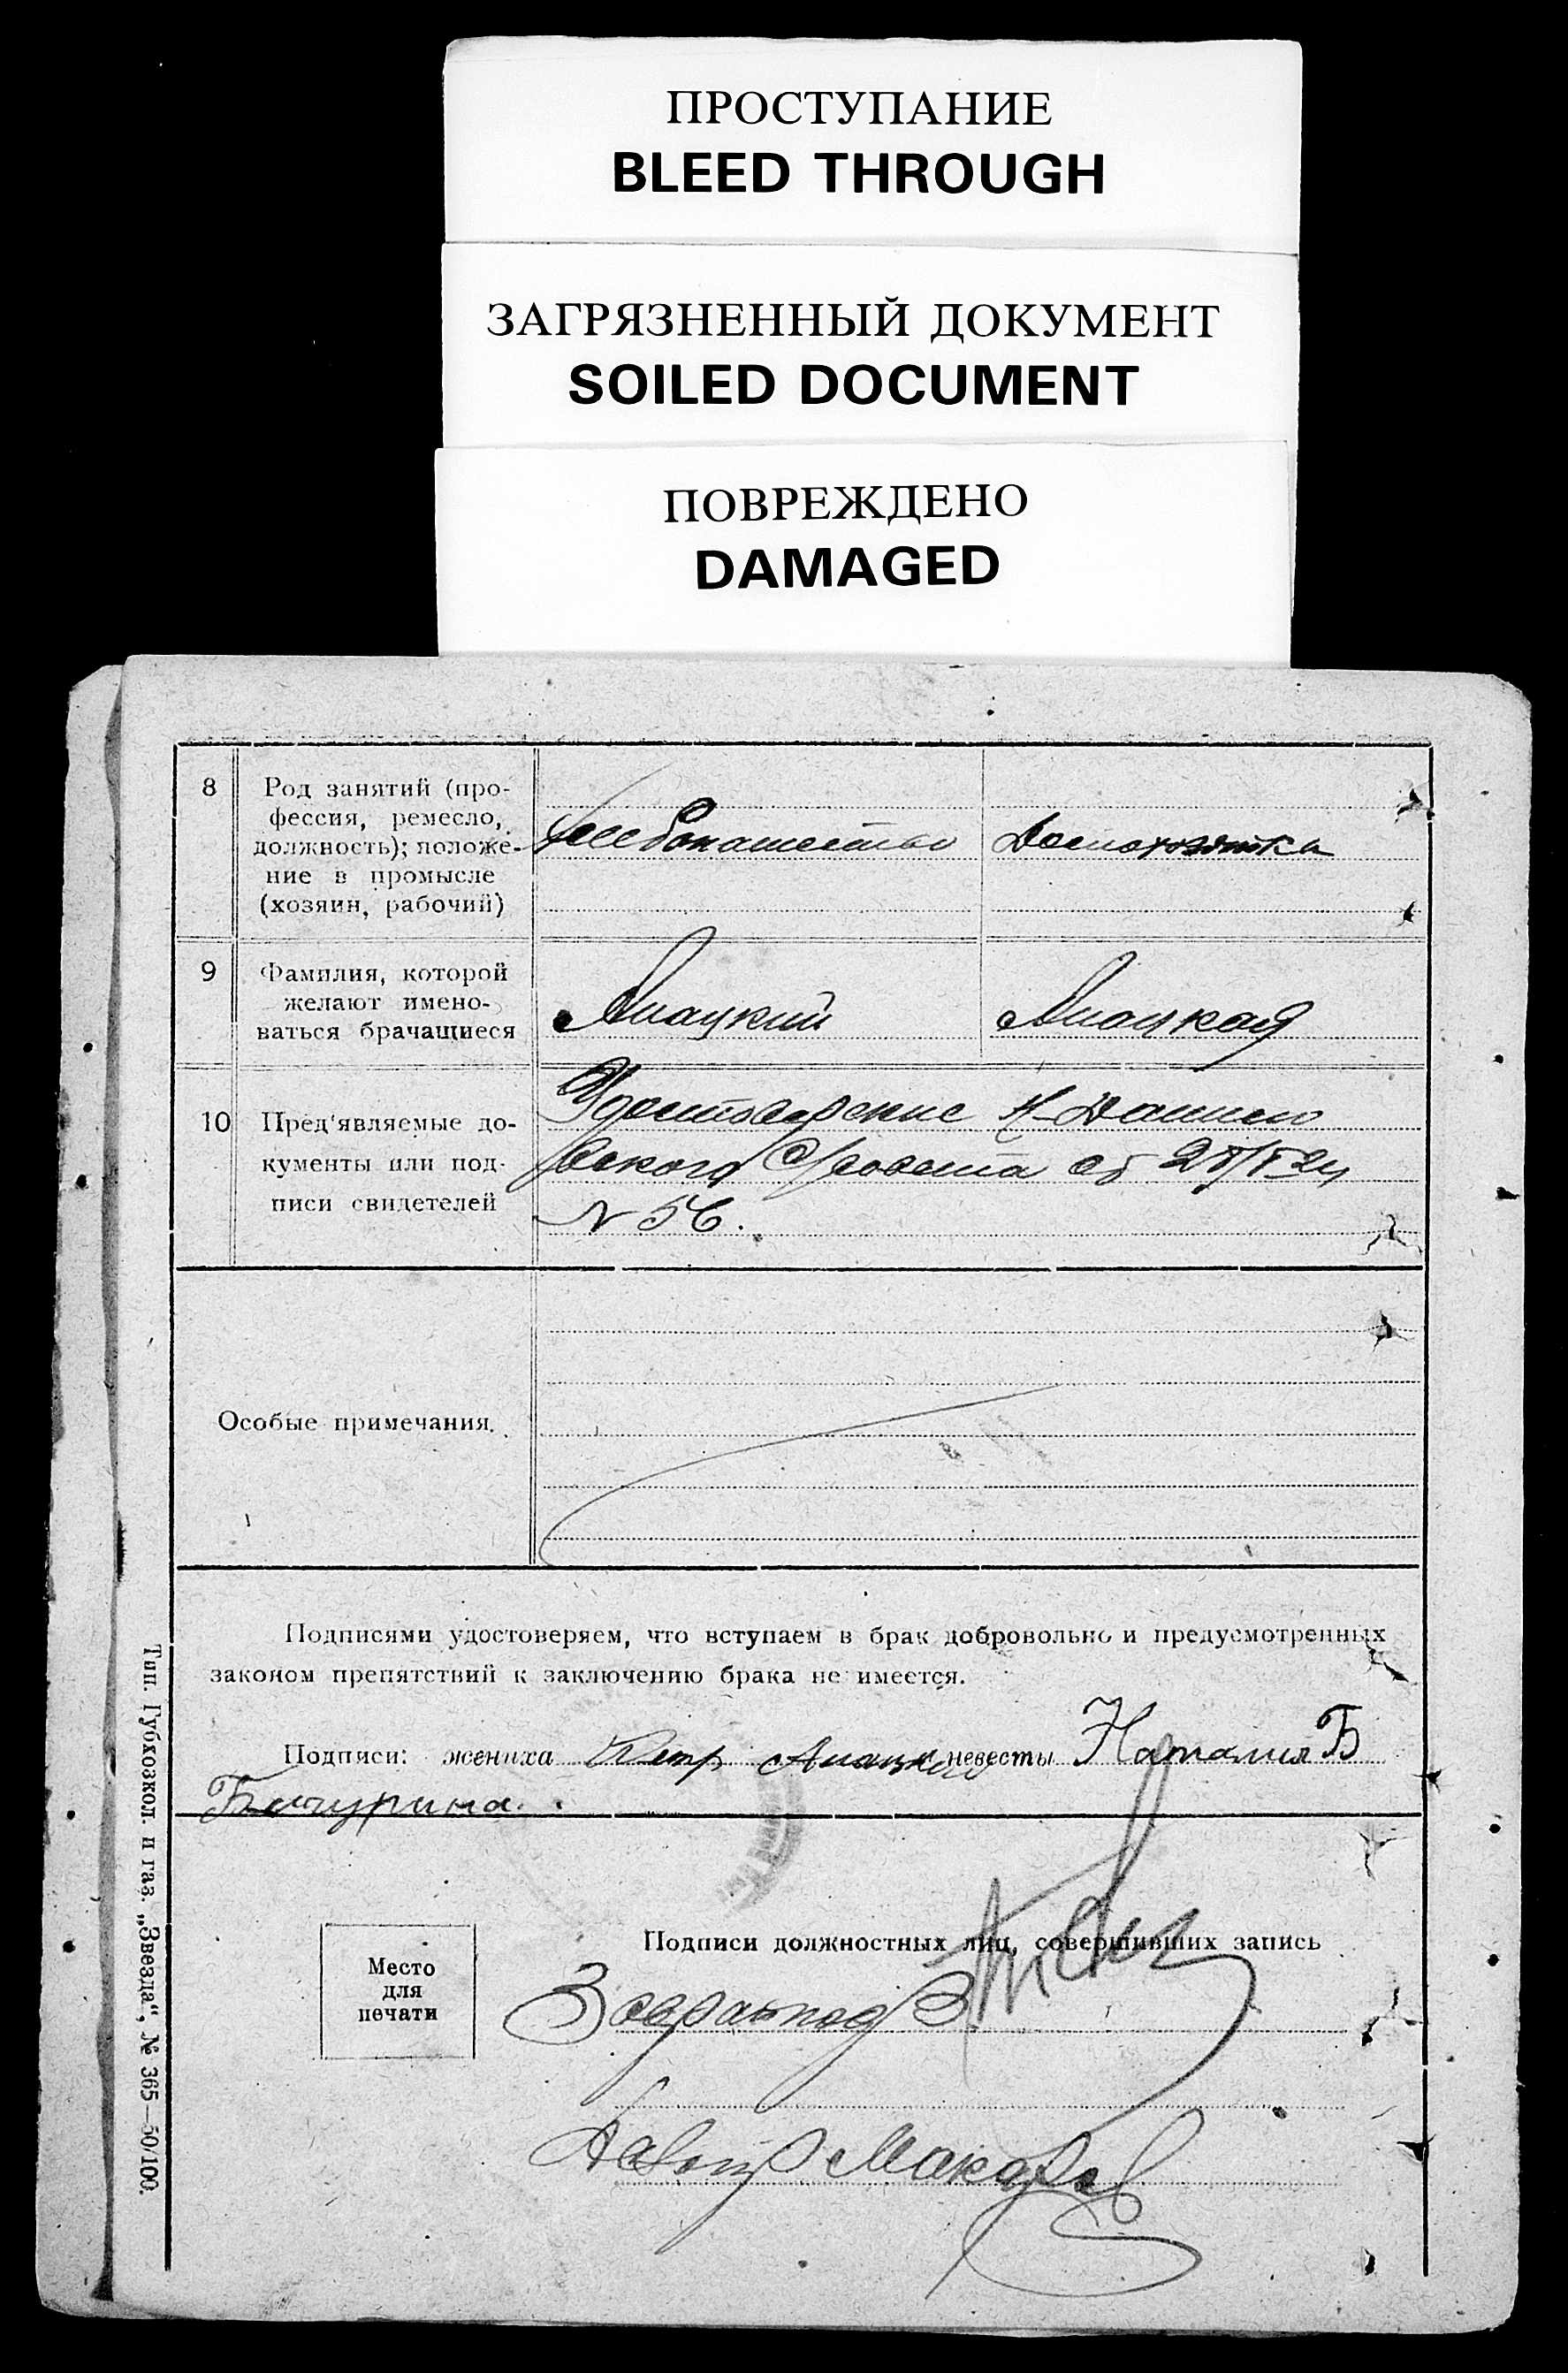 ПРОСТУПАНИЕ
BLEED THROUGH
ЗАГРЯЗНЕННЫЙ ДОКУМЕНТ
SOILED DOCUMENT
ПОВРЕЖДЕНО
DAMAGED
8
Род занятий (про-
фессия, ремесло,
должность); положе-
ние в промысле
(хозяин, рабочий)
Хлебопашество
Домохозяйка
9
Фамилия, которой
желают имено-
ваться брачащиеся
10
Пред'являемые до-
кументы или под-
писи свидетелей
Удостоверение Н-Данилов
ского С/совета от
N 56.
Особые примечания.
Подписями удостоверяем, что вступаем в брак добровольно и предусмотренных
законом препятствий к заключению брака не имеется.
Подписи: жениха Петр невесты Наталия Б
Бачурина.
Подписи должностных лиц, совершивших запись
Место
для
печати
Макаров
Тип. Губхозкол. и газ. „Звезда“, № 365—50/100.